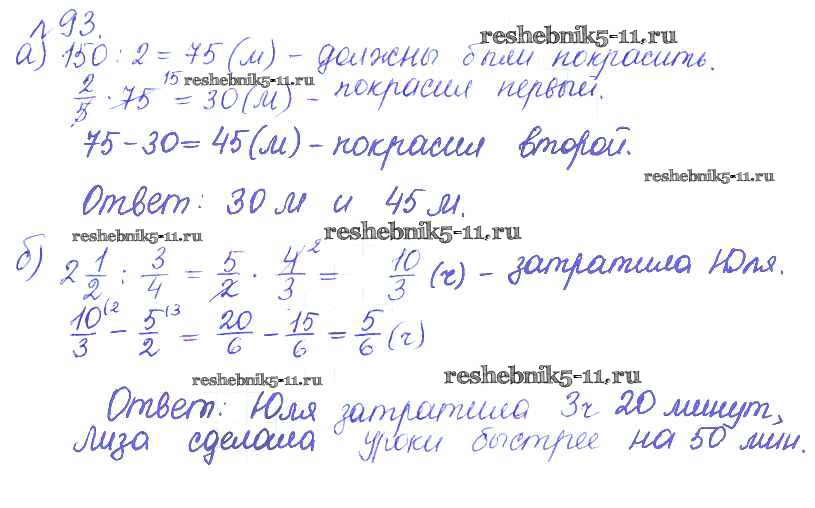 №93.
reshebnik5-11.ru
а) 150 : 2 = 75 (м) – должны были покрасить.
2/5 · 75 15 = 30 (м) – покрасил первый.
reshebnik5-11.ru
75 – 30 = 45 (м) – покрасил второй.
reshebnik5-11.ru
Ответ: 30 м и 45 м.
reshebnik5-11.ru reshebnik5-11.ru
б) 2 1/2 : 3/4 = 5/2 · 4/3 2 = 10/3 (ч) – затратила Юля.
10/3 (2 – 5/2 (3 = 20/6 – 15/6 = 5/6 (ч)
reshebnik5-11.ru reshebnik5-11.ru
Ответ: Юля затратила 3ч 20 минут,
Лиза сделала уроки быстрее на 50 мин.